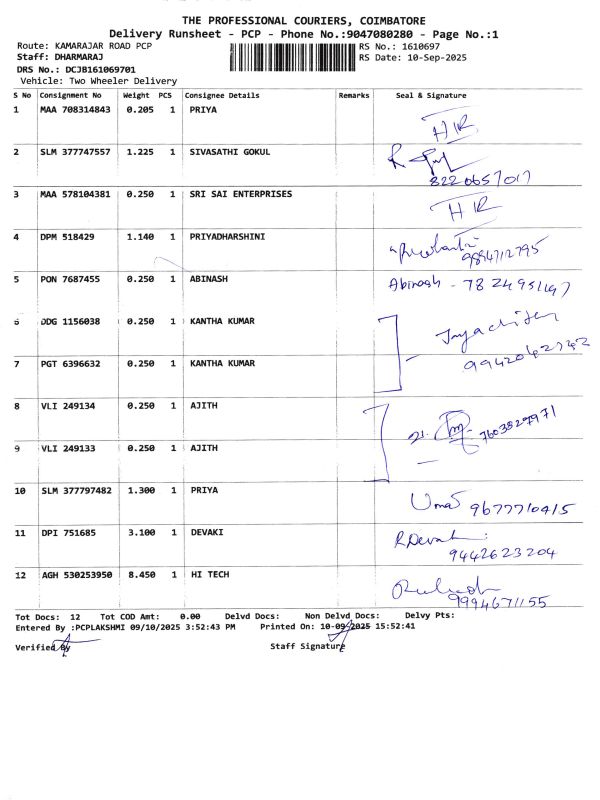 THE PROFESSIONAL COURIERS, COIMBATORE
Delivery Runsheet - PCP - Phone No.:9047080280 - Page No.:1
Route: KAMARAJAR ROAD PCP RS No.: 1610697
Staff: DHARMARAJ RS Date: 10-Sep-2025
DRS No.: DCJB161069701
Vehicle: Two Wheeler Delivery
S No Consignment No Weight PCS Consignee Details Remarks Seal & Signature
1 MAA 708314843 0.205 1 PRIYA
H/R
2 SLM 377747557 1.225 1 SIVASATHI GOKUL
8220657017
3 MAA 578104381 0.250 1 SRI SAI ENTERPRISES
H/R
4 DPM 518429 1.140 1 PRIYADHARSHINI
9894712795
5 PON 7687455 0.250 1 ABINASH Abinash - 7824951197
6 DDG 1156038 0.250 1 KANTHA KUMAR
7 PGT 6396632 0.250 1 KANTHA KUMAR
8 VLI 249134 0.250 1 AJITH
7603827971
9 VLI 249133 0.250 1 AJITH
10 SLM 377797482 1.300 1 PRIYA
Uma 9677710415
11 DPI 751685 3.100 1 DEVAKI R.Devaki
9442623204
12 AGH 530253950 8.450 1 HI TECH
9994671155
Tot Docs: 12 Tot COD Amt: 0.00 Delvd Docs: Non Delvd Docs: Delvy Pts:
Entered By :PCPLAKSHMI 09/10/2025 3:52:43 PM Printed On: 10-09-2025 15:52:41
Verified By Staff Signature